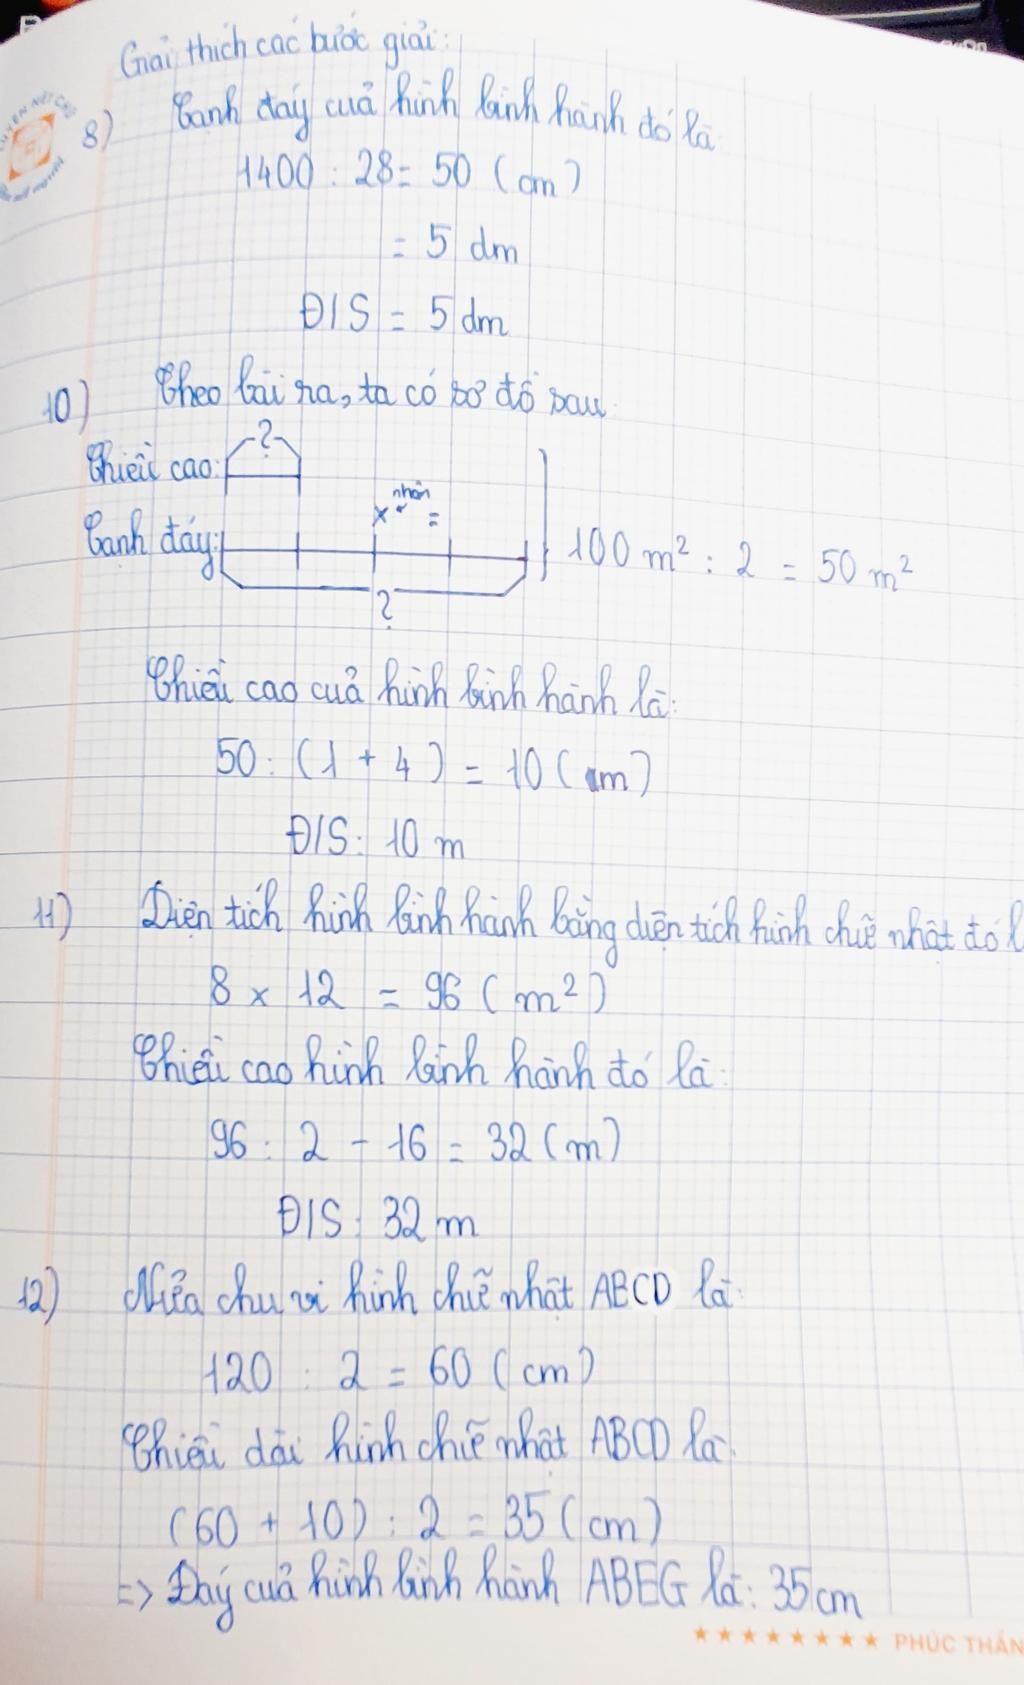 Giải thích các bước giải:
8) Cạnh đáy cuả hình bình hành đó là
1400 : 28 = 50 (cm)
= 5 dm
Đ/S = 5 dm
10) Theo bài ra, ta có sơ đồ sau
?
Chiều cao:
nhân
x =
Cạnh đáy:
100 m² : 2 = 50 m²
?
Chiều cao cuả hình bình hành là:
50 : (1 + 4) = 10 (m)
Đ/S: 10 m
11) Diện tích hình bình hành bằng diện tích hình chữ nhật đó l
8 x 12 = 96 (m²)
Chiều cao hình bình hành đó là:
96 : 2 - 16 = 32 (m)
Đ/S: 32 m
12) Nửa chu vi hình chữ nhật ABCD là:
120 : 2 = 60 (cm)
Chiều dài hình chữ nhật ABCD là:
(60 + 10) : 2 = 35 (cm)
=> Đáy cuả hình bình hành ABEG là: 35 cm
PHÚC THÀN